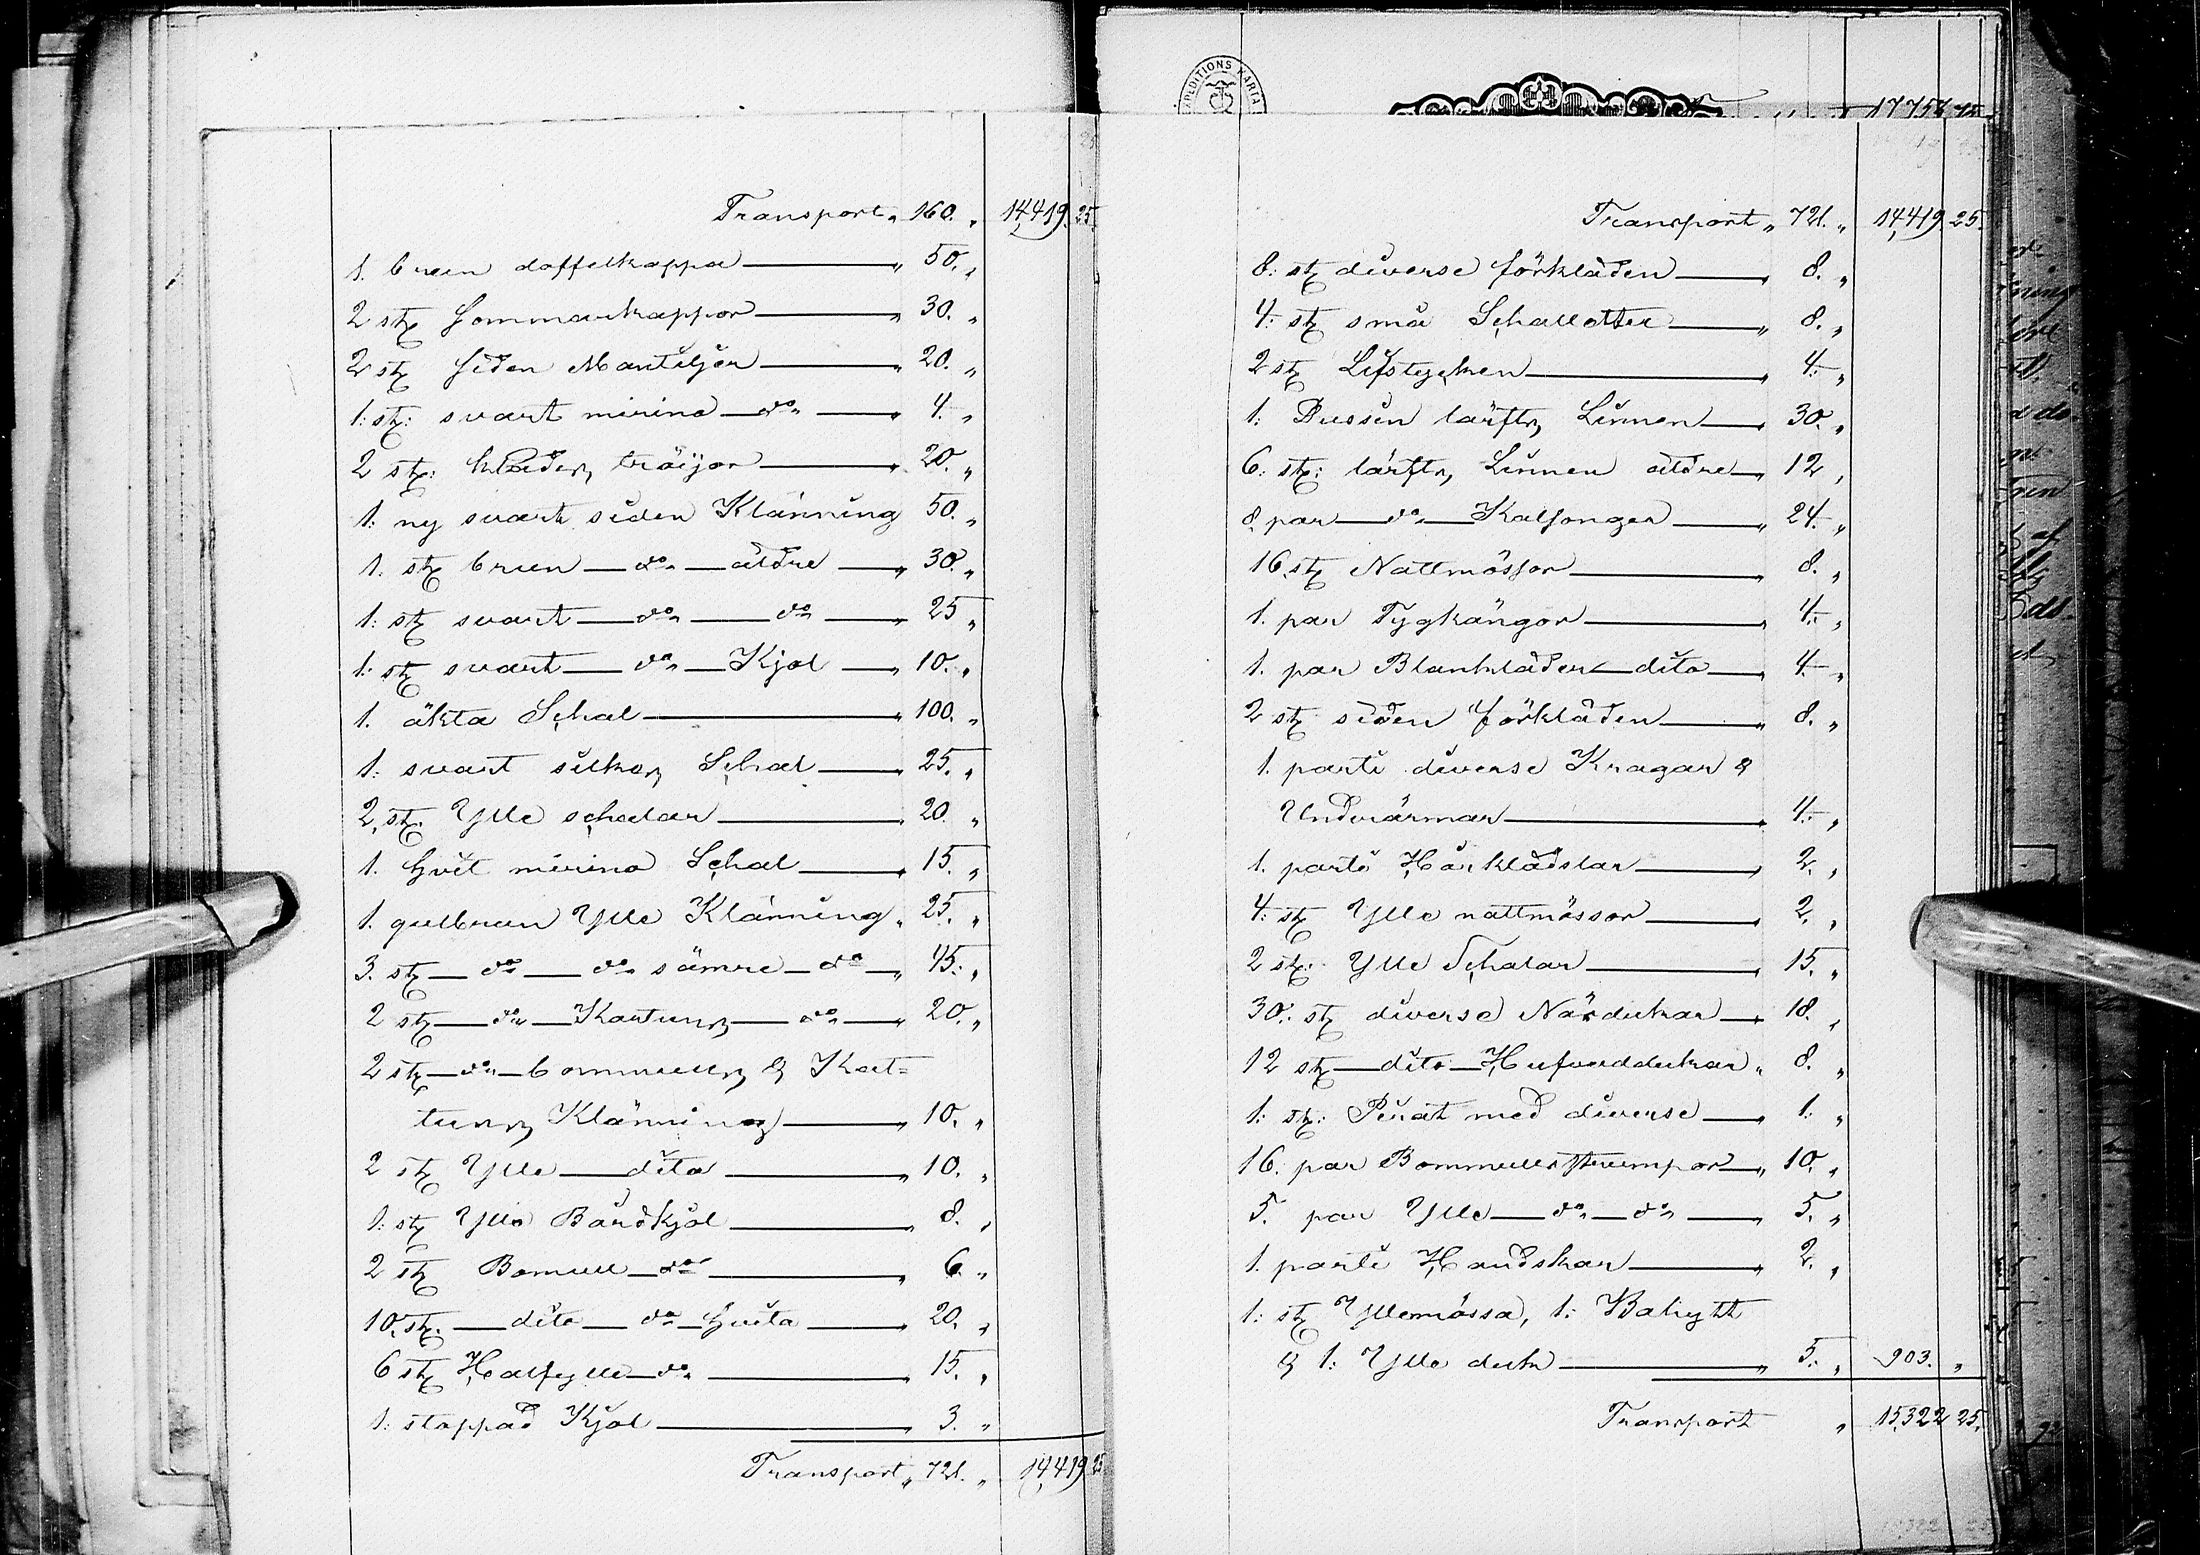 Transport „ 160. „ 14,419. 25.
1. brun doffelkappa „ 50. „
2 st. Sommarkappor „ 30. „
2 st. Siden Mantiljer „ 20. „
1: st: svart mirino d:o „ 4. „
2 st: kläder, tröijor „ 20. „
1: ny svart siden Klänning 50. „
1. st. brun d:o äldre „ 30. „
1: st. svart d:o d:o „ 25 „
1: st. svart d:o Kjol „ 10. „
1. äkta Schal „ 100. „
1: svart silkes Schal „ 25. „
2, st. Ylle schalar „ 20. „
1. hvit mirino Schal „ 15. „
1. gulbrun Ylle Klänning „ 25. „
3. st. d:o d:o sämre d:o „ 45. „
2 st. d:o Kartuns d:o „ 20. „
2 st. d:o bommulls & Kat=
tuns Klänning „ 10. „
2 st. Ylle dito „ 10. „
1: st. Ylle Bårdkjol „ 8. „
2 st. Bomull d:o „ 6. „
10, st. dito d:o hvita „ 20. „
6 st. Halfylle d:o „ 15. „
1: stoppad Kjol „ 3. „
Transport „ 721. „ 14,419 25
EXPEDITIONS KARTA
17756 75
Transport „ 721. „ 14,419 25.
8: st. diverse förkläden „ 8. „
4: st. små Schaletter „ 8. „
2 st. Lifstycken „ 4. „
1: Dussin lärfts Linnen „ 30. „
6: st: lärfts Linnen äldre „ 12 „
8. par d:o Kalsonger „ 24. „
16. st. Nattmössor „ 8. „
1. par Tygkängor „ 4. „
1. par Blankläder dito „ 4. „
2 st. siden förkläden „ 8. „
1. parti diverse Kragar &
Underärmar „ 4. „
1. parti Hårklädslar „ 2. „
4: st. Ylle nattmössor „ 2. „
2 st: Ylle Schalar „ 15. „
30: st. diverse Näsdukar „ 18. „
12 st. dito Hufvuddukar „ 8. „
1: st: Pirat med diverse „ 1: „
16. par Bommullsstrumpor „ 10. „
5. par Ylle d:o d:o „ 5. „
1. parti Handskar „ 2. „
1: st. Yllemössa, 1: Bahytt
& 1: Ylle duk „ 5. „ 903. „
Transport „ 15,322 25.